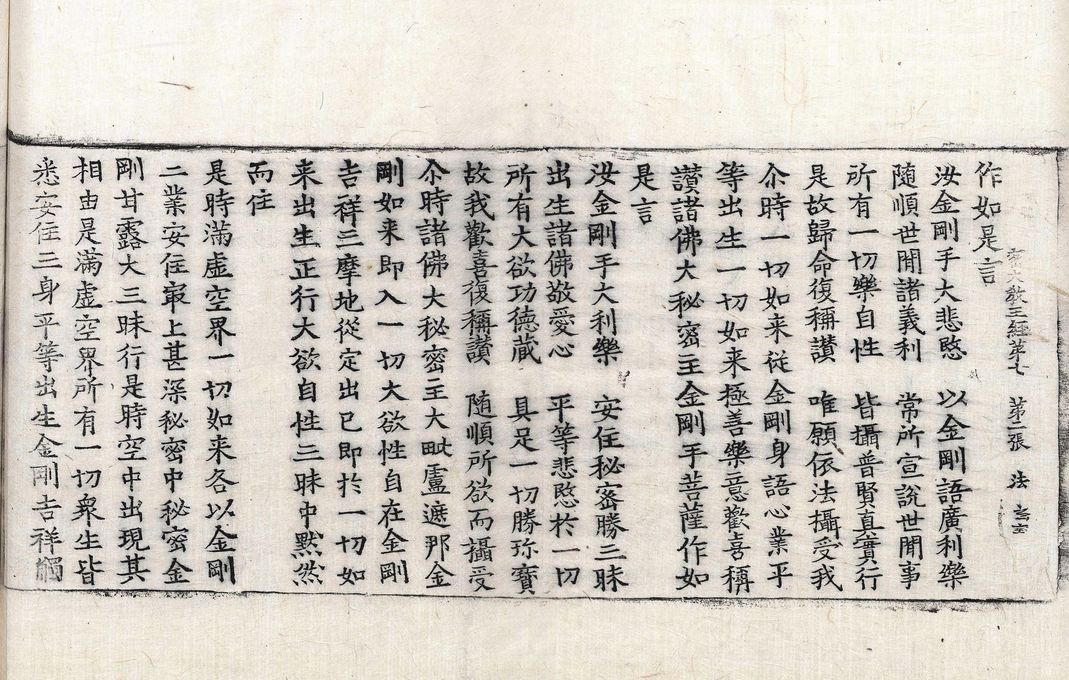 大教王經第七　第二張　法
作如是言
汝金剛手大悲愍　以金剛語廣利樂
隨順世間諸義利　常所宣說世間事
所有一切樂自性　皆攝普賢真實行
是故歸命復稱讃　唯願依法攝受我
尒時一切如来從金剛身語心業平
等出生一切如来極善樂意歡喜稱
讃諸佛大秘密主金剛手菩薩作如
是言
汝金剛手大利樂　安住秘密勝三昧
出生諸佛敬愛心　平等悲愍於一切
所有大欲功德蔵　具足一切勝珎寶
故我歡喜復稱讃　隨順所欲而攝受
尒時諸佛大秘密主大毗盧遮那金
剛如来即入一切大欲性自在金剛
吉祥三摩地從定出已即於一切如
来出生正行大欲自性三昧中黙然
而住
是時滿虛空界一切如来各以金剛
二業安住㝡上甚深秘密中秘密金
剛甘露大三昧行是時空中出現其
相由是滿虛空界所有一切衆生皆
悉安住三身平等出生金剛吉祥觸